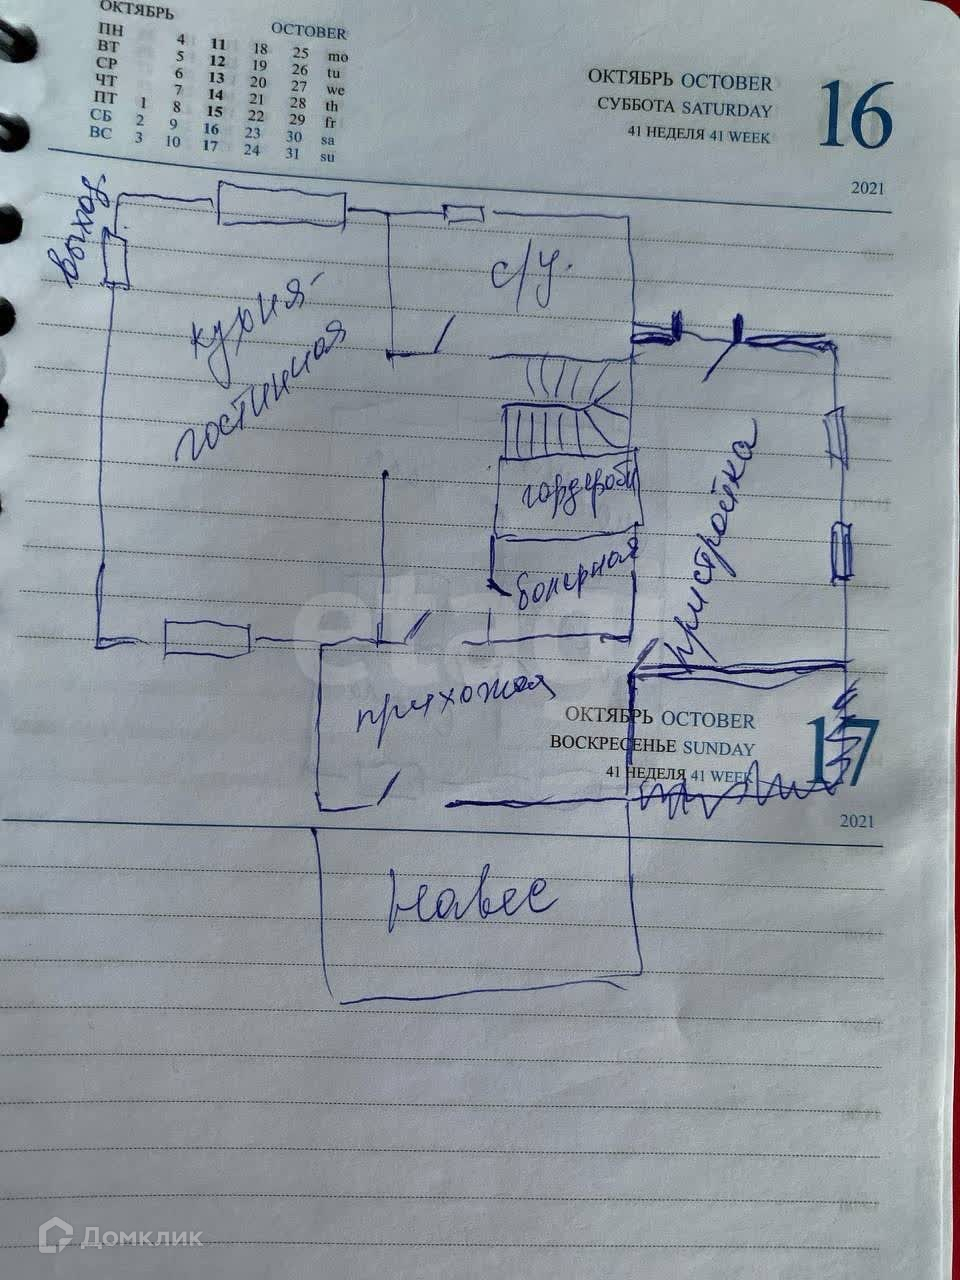 ОКТЯБРЬ OCTOBER
ПН 4 11 18 25 mo
ВТ 5 12 19 26 tu
СР 6 13 20 27 we
ЧТ 7 14 21 28 th
ПТ 1 8 15 22 29 fr
СБ 2 9 16 23 30 sa
ВС 3 10 17 24 31 su
ОКТЯБРЬ OCTOBER 16
СУББОТА SATURDAY
41 НЕДЕЛЯ 41 WEEK
2021
выход
с/у.
кухня-
гостинная
гардероб
бойлерная
пристройка
прихожая
ОКТЯБРЬ OCTOBER 17
ВОСКРЕСЕНЬЕ SUNDAY
41 НЕДЕЛЯ 41 WEEK
2021
навес
etagi
Домклик